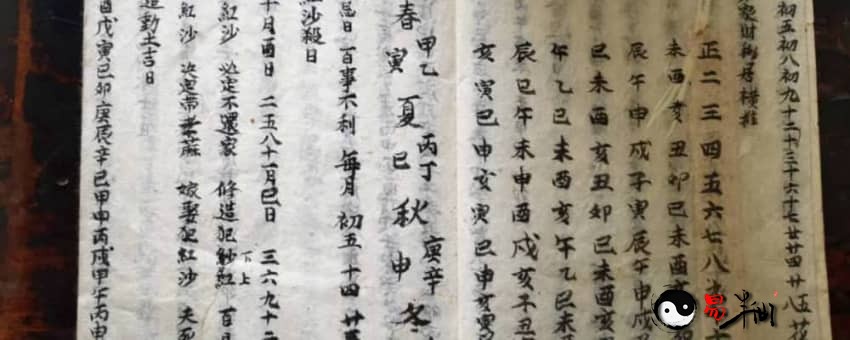 初五初八初九十二十三十六十七廿廿四廿八五花
家財物居橫推
正二三四五六七八九十
未酉亥丑卯巳未酉
辰午申戌子寅辰午申戌
巳未酉亥丑卯巳未酉亥
午乙巳未酉亥午乙巳未
辰巳午未申酉戌亥子丑
亥寅巳申亥寅巳申亥寅
甲乙 丙丁 庚辛
春寅夏巳秋申冬
忌日 百事不利 每月 初五 十四 廿三
紅沙殺日
十月酉日 二五八十一月巳日 三六九十二
紅沙 必定不還家 修造犯紅沙 百日
紅沙 決定帶 嫁娶犯紅沙 夫死
造動土吉日
酉戊寅己卯庚辰辛巳甲申丙戌甲午丙申
易半仙